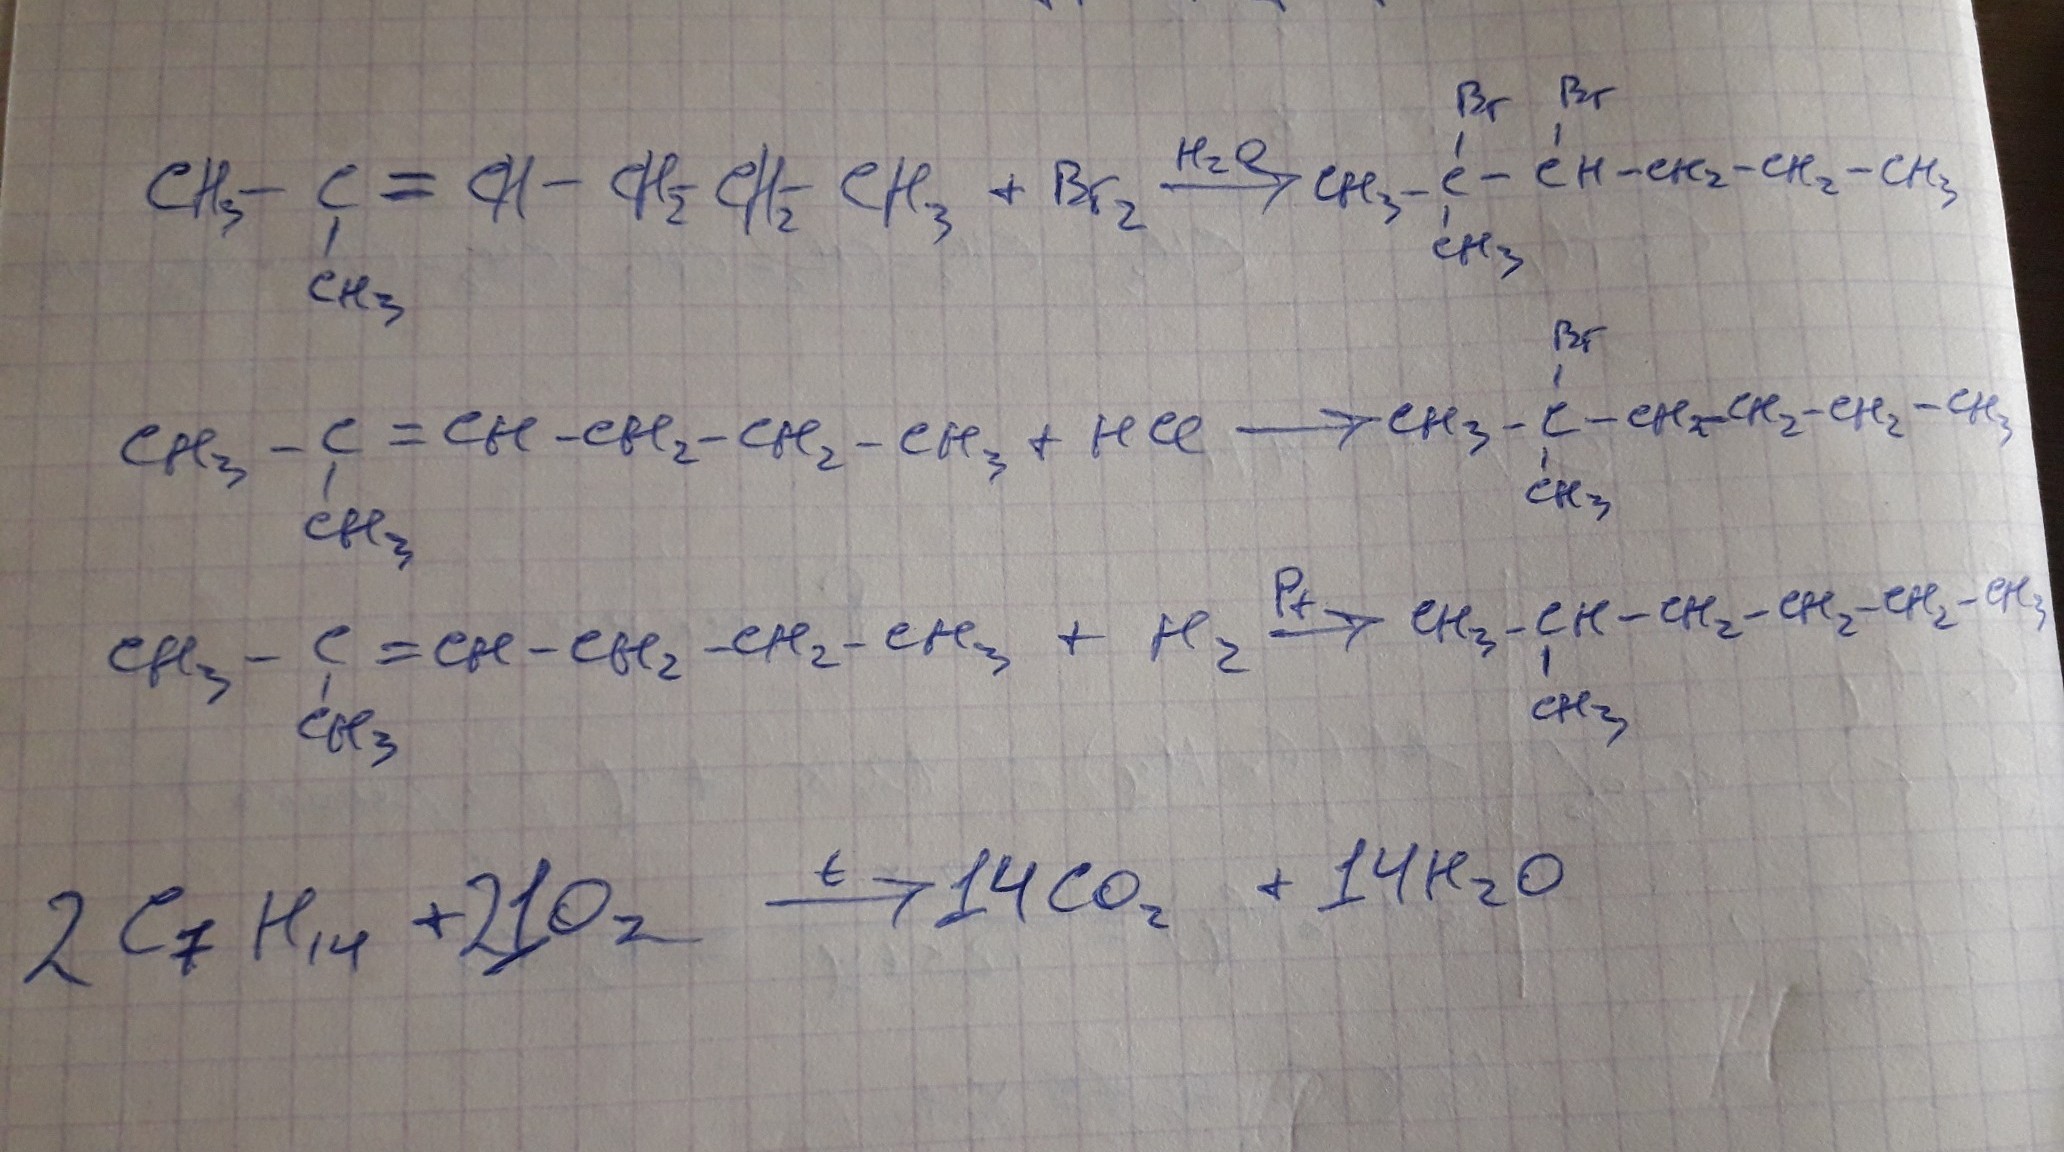 Br Br
CH₃ - C = CH - CH₂ - CH₂ - CH₃ + Br₂ H₂O → CH₃ - C - CH - CH₂ - CH₂ - CH₃
CH₃ CH₃
Br
CH₃ - C = CH - CH₂ - CH₂ - CH₃ + HCl → CH₃ - C - CH₂ - CH₂ - CH₂ - CH₃
CH₃ CH₃
CH₃ - C = CH - CH₂ - CH₂ - CH₃ + H₂ Pt → CH₃ - CH - CH₂ - CH₂ - CH₂ - CH₃
CH₃ CH₃
2 C₇ H₁₄ + 21O₂ t → 14CO₂ + 14H₂O